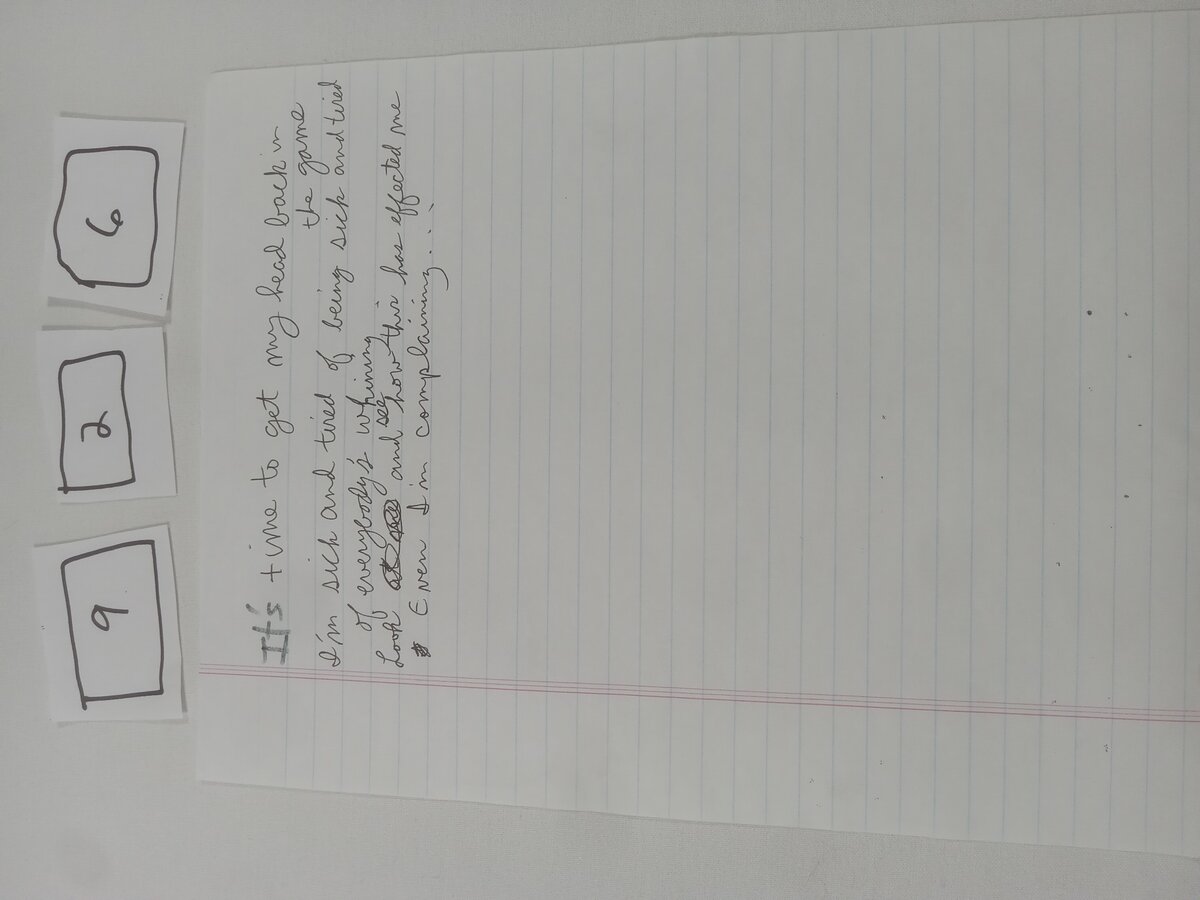 9 2 6
It's time to get my head back in
the game
I'm sick and tired of being sick and tired
of everybody's whining
Look and see how this has effected me
Even I'm complaining...